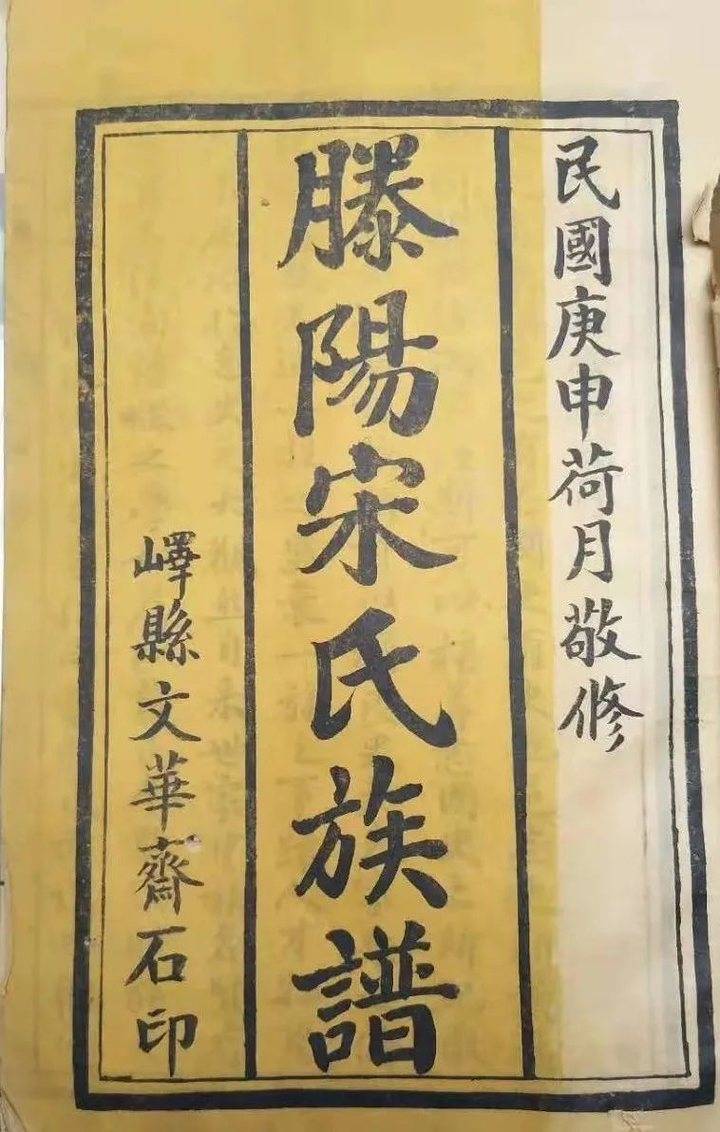 民國庚申荷月敬修
滕陽宋氏族譜
嶧縣文華齋石印